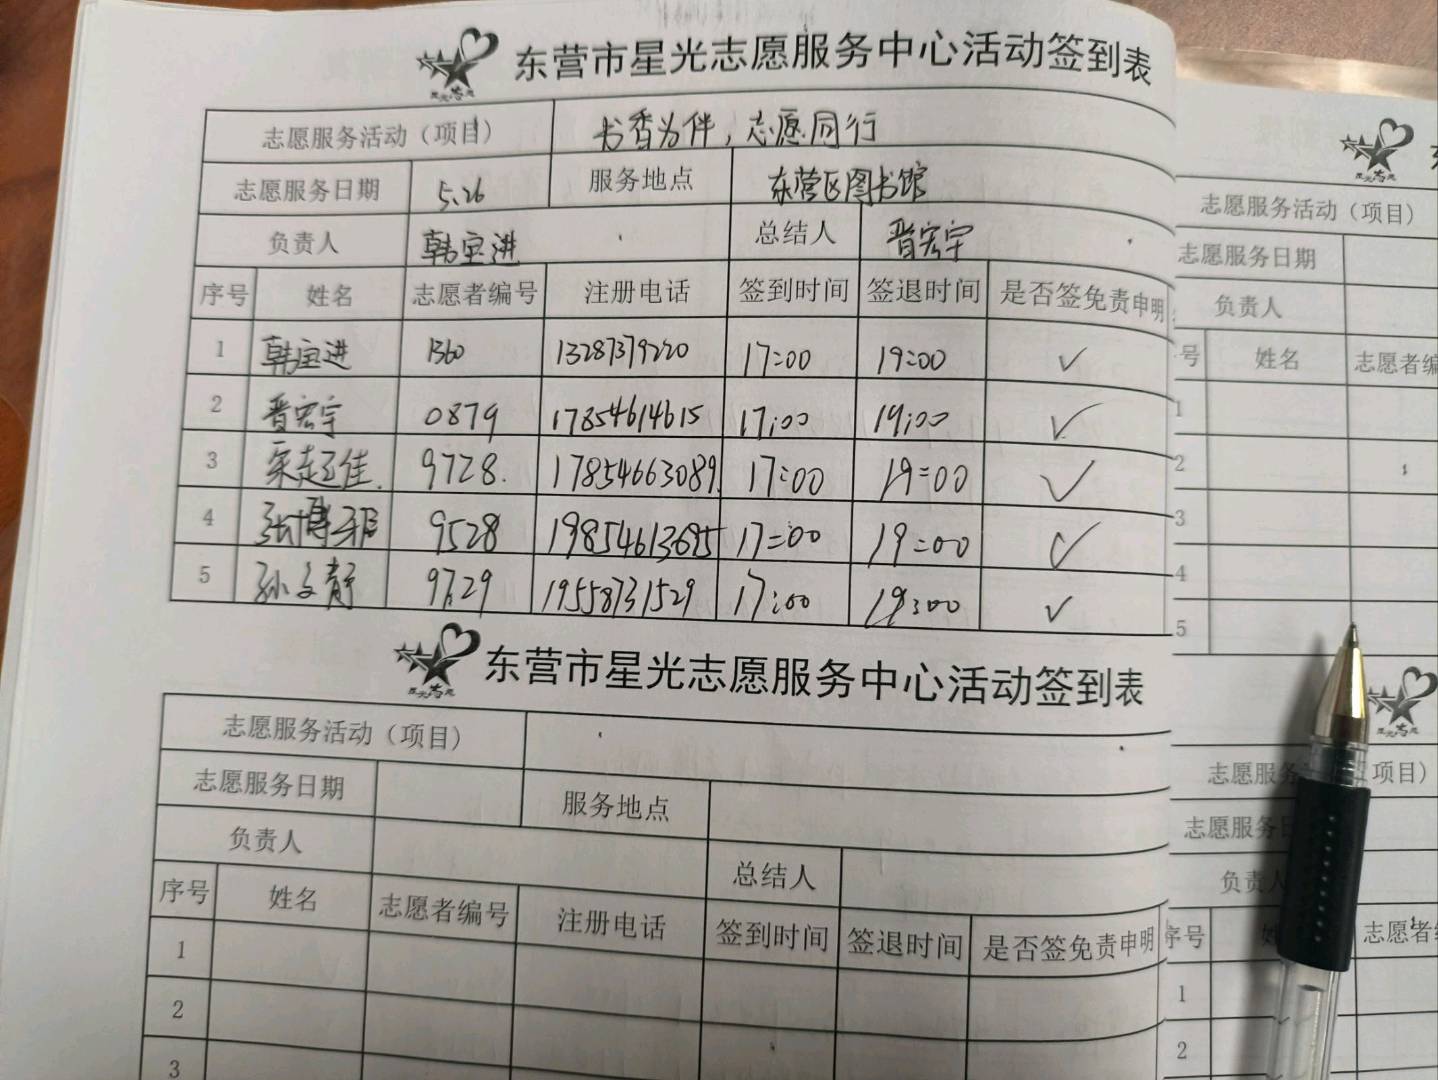 东营市星光志愿服务中心活动签到表
志愿服务活动（项目） 书香为伴，志愿同行
志愿服务日期 5.26 服务地点 东营区图书馆
负责人 韩宝进 总结人 晋宏宇
序号 姓名 志愿者编号 注册电话 签到时间 签退时间 是否签免责申明
1 韩宝进 1360 13287379220 17:00 19:00 ✓
2 晋宏宇 0879 17854614615 17:00 19:00 ✓
3 9728. 17854663089. 17:00 19:00 ✓
4 9528 17:00 19:00 ✓
5 孙文静 9729 19558731529 17:00 19:00 ✓
东营市星光志愿服务中心活动签到表
志愿服务活动（项目）
志愿服务日期 服务地点
负责人 总结人
序号 姓名 志愿者编号 注册电话 签到时间 签退时间 是否签免责申明
1
2
3
志愿服务活动（项目）
志愿服务日期
负责人
号 姓名 志愿者编
1
2
3
4
5
志愿服务 项目）
志愿服务日
负责人
序号 姓 志愿者
1
2